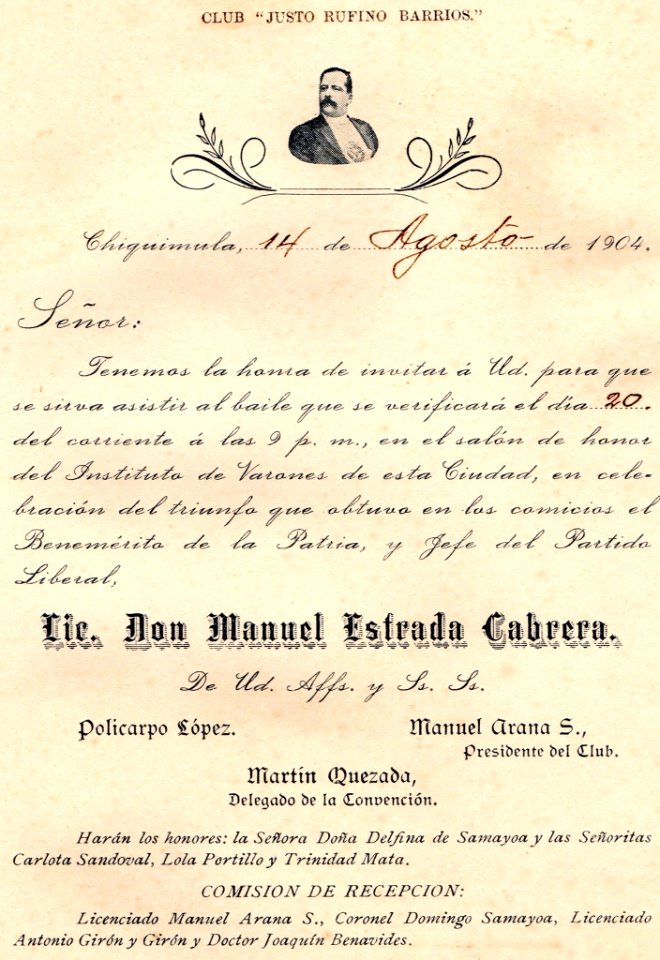 CLUB “JUSTO RUFINO BARRIOS.”
Chiquimula, 14 de Agosto de 1904.
Señor:
Tenemos la honra de invitar á Ud. para que
se sirva asistir al baile que se verificará el día 20.
del corriente á las 9 p. m., en el salón de honor
del Instituto de Varones de esta Ciudad, en cele-
bración del triunfo que obtuvo en los comicios el
Benemérito de la Patria, y Jefe del Partido
Liberal,
Lic. Don Manuel Estrada Cabrera.
De Ud. Affs. y Ss. Ss.
Policarpo López.
Manuel Arana S.,
Presidente del Club.
Martín Quezada,
Delegado de la Convención.
Harán los honores: la Señora Doña Delfina de Samayoa y las Señoritas
Carlota Sandoval, Lola Portillo y Trinidad Mata.
COMISION DE RECEPCION:
Licenciado Manuel Arana S., Coronel Domingo Samayoa, Licenciado
Antonio Girón y Girón y Doctor Joaquín Benavides.